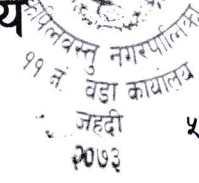 य
कपिलवस्तु नगरपालिका
११ नं. वडा कार्यालय
जहदी
२०७३
५